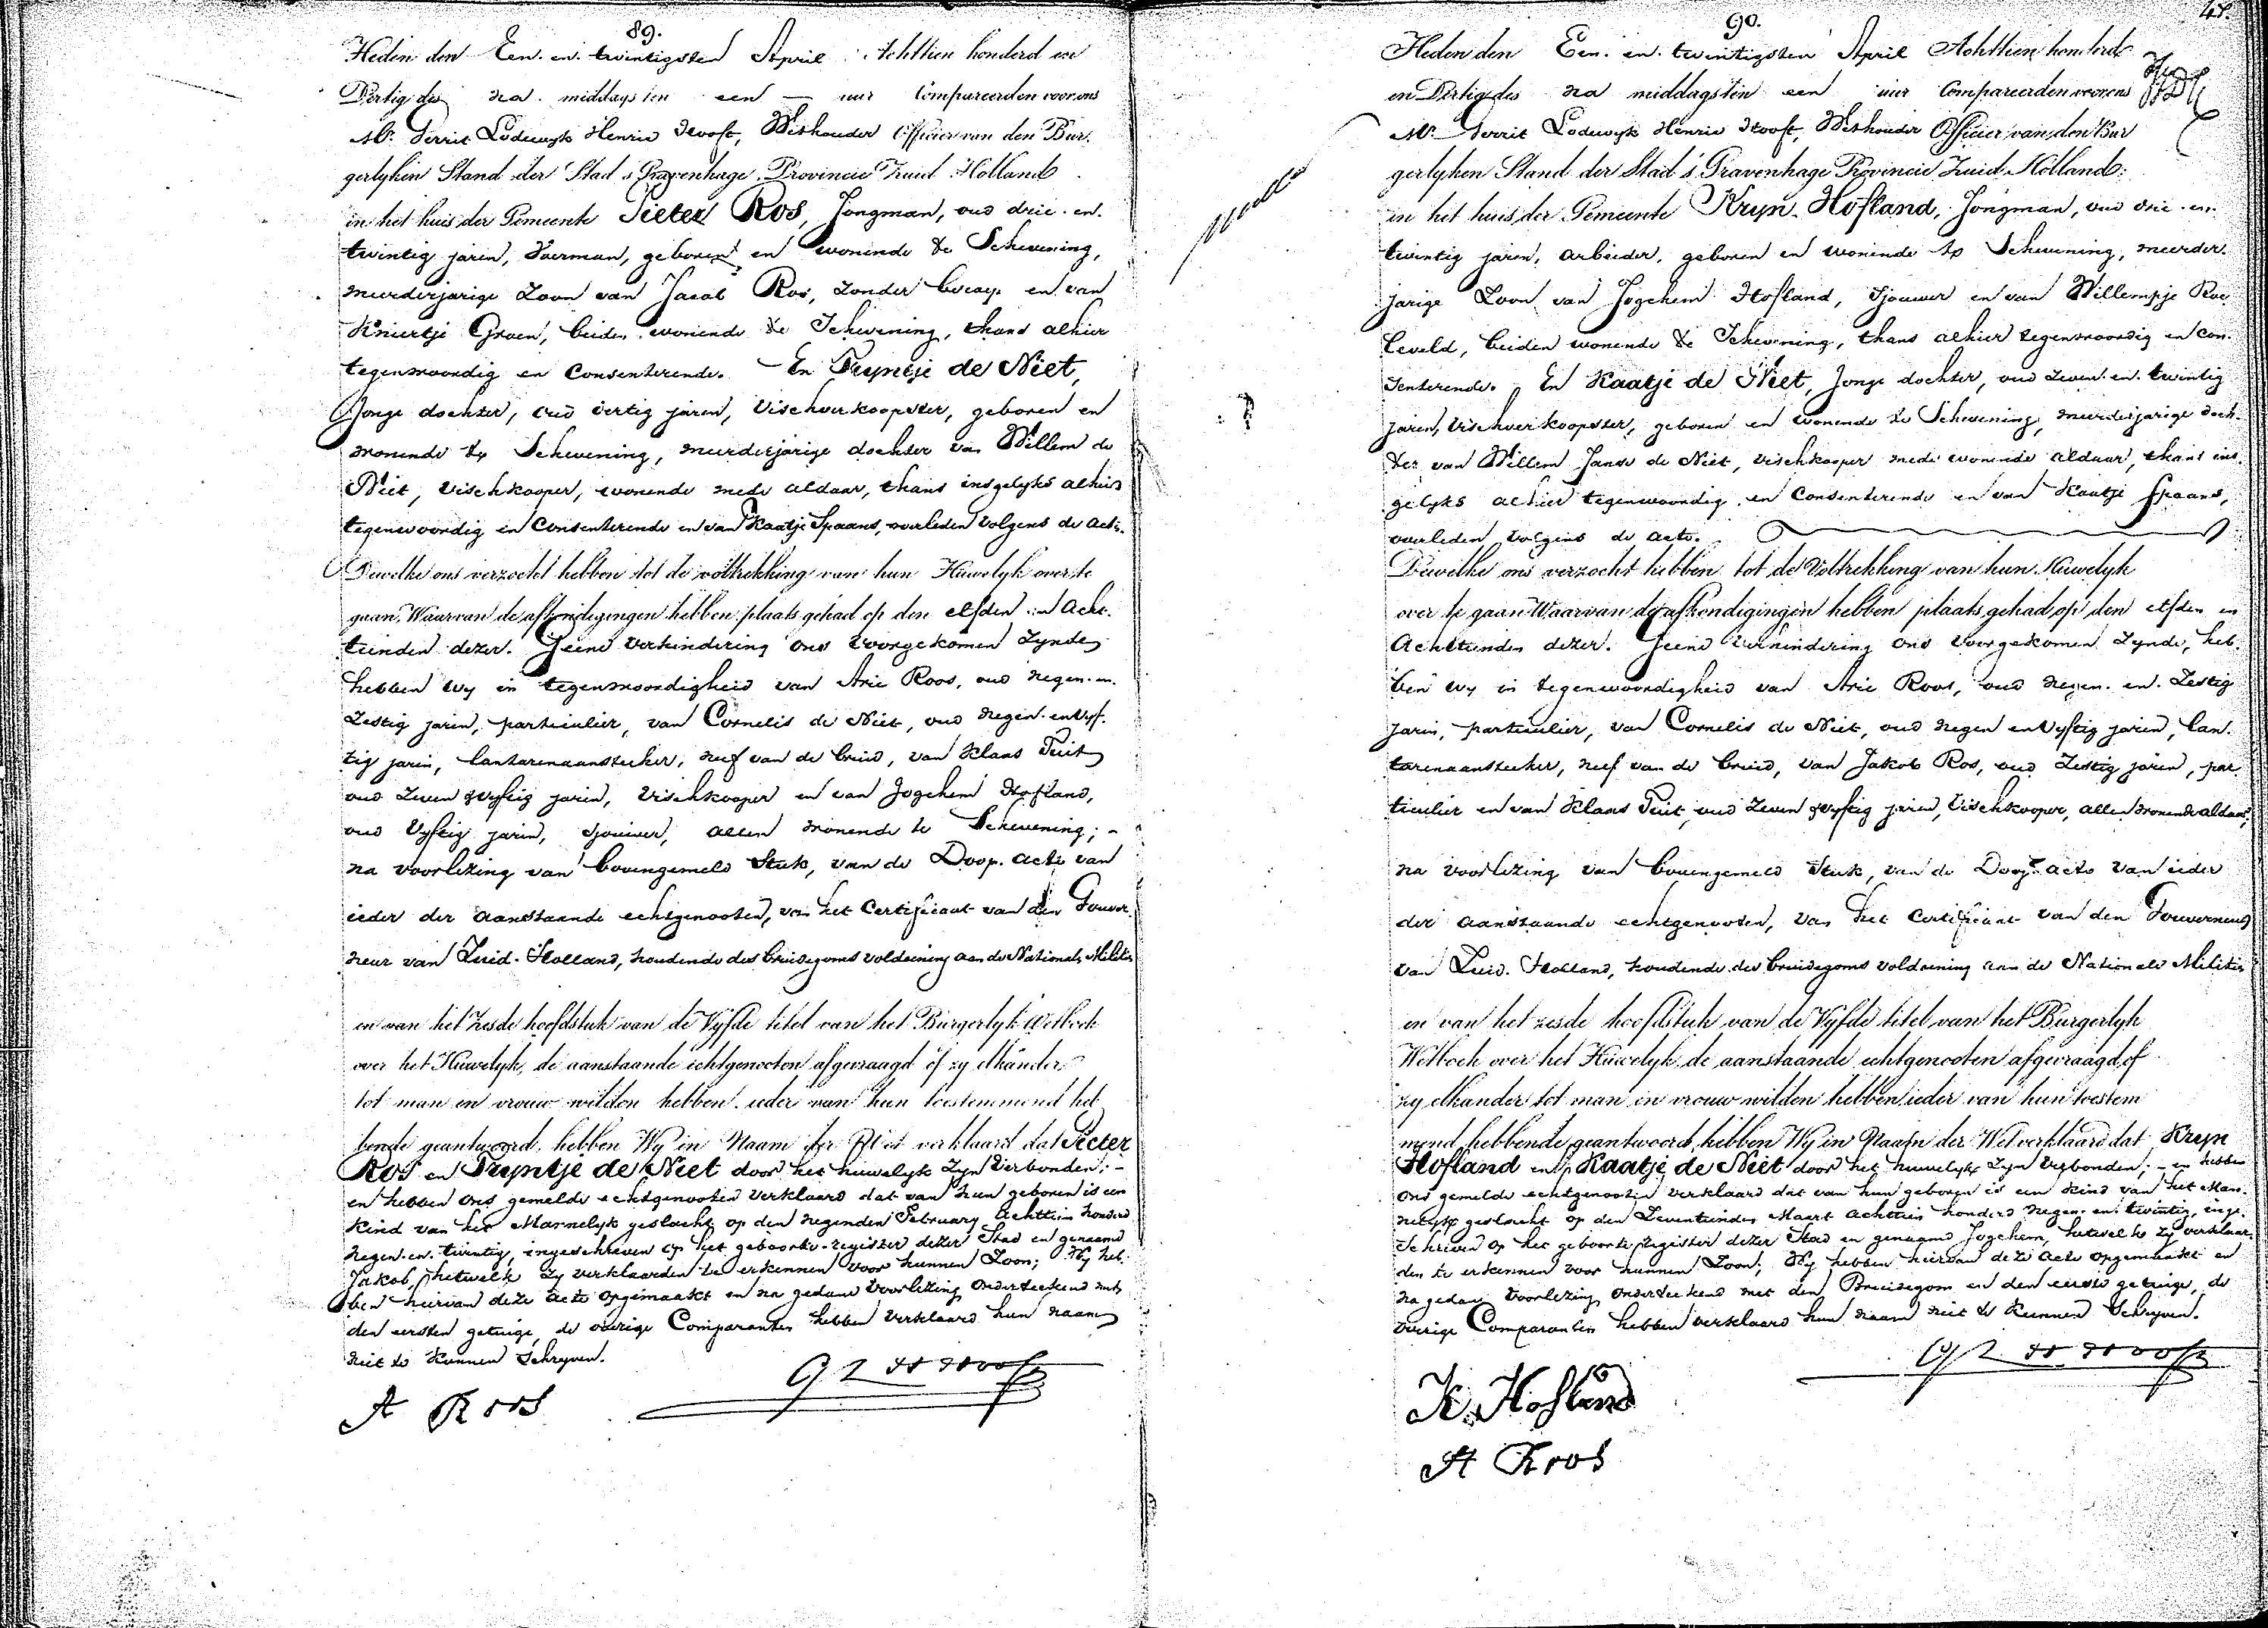 89.
Heden den Een. en. twintigsten April Achttien honderd en
Dertig des na. middags ten een — uur Compareerden voor ons
Mr. Gerrit Lodewyk Henrie Hooft, Wethouder Officier van den Bur.
gerlyken Stand der Stad s'Gravenhage, Provincie Zuid Holland
in het huis der Gemeente Pieter Ros, Jongman, oud drie. en.
twintig jaren, Voerman, geboren en wonende te Schevening,
meerderjarige Zoon van Jacob Ros, zonder beroep en van
Kniertje Groen, beiden wonende te Schevening, thans alhier
tegenwoordig en Consenterende. — En Tryntje de Niet,
Jonge dochter, oud dertig jaren, Vischverkoopster, geboren en
wonende te Schevening, meerderjarige dochter van Willem de
Niet, Vischkooper, wonende mede aldaar, thans insgelyks alhier
tegenwoordig en Consenterende en van Kaatje Spaans, overleden volgens de acte.
Dewelke ons verzocht hebben tot de voltrekking van hun Huwelyk over te
gaan, Waarvan de afkondigingen hebben plaats gehad op den elfden en Acht.
tienden dezer. Geene verhindering ons voorgekomen zynde,
hebben wy in tegenwoordigheid van Arie Roos, oud negen. en.
Zestig jaren, particulier, van Cornelis de Niet, oud negen. en Vyf.
tig jaren, lantarenaansteeker, neef van de bruid, van Klaas Tuit
oud Zeven & vyftig jaren, Vischkooper en van Jogchem Hofland,
oud Vyftig jaren, Sjouwer, allen wonende te Schevening; –
na voorlezing van bovengemeld Stuk, van de Doop. acte van
ieder der aanstaande echtgenooten, van het Certificaat van den Gouver.
neur van Zuid. Holland, houdende des bruidegoms voldoening aan de Nationale Militie
en van het Zesde hoofdstuk van de Vyfde titel van het Burgerlyk Wetboek
over het Huwelyk, de aanstaande echtgenooten afgevraagd of zy elkander
tot man en vrouw wilden hebben. ieder van hun toestemmend heb
bende geantwoord, hebben Wy in Naam der Wet verklaard dat Pieter
Ros en Tryntje de Niet door het huwelyk Zyn Verbonden; –
en hebben ons gemelde echtgenooten verklaard dat van hun geboren is een
Kind van het Mannelyk geslacht op den negenden February achttien honderd
negen. en. twintig, ingeschreven op het geboorte-register dezer Stad en genaamd
Jakob, hetwelk zy verklaarden te erkennen voor hunnen Zoon; Wy heb.
ben hiervan deze acte opgemaakt en na gedane voorlezing onderteekend met
den eersten getuige, de overige Comparanten hebben verklaard hun naam
niet te kunnen Schryven.
G L H Hooft
A Roos
90.
Heden den Een. en. twintigsten April Achttien honderd
en Dertig des na middags ten een uur Compareerden voor ons
Mr. Gerrit Lodewyk Henrie Hooft, Wethouder Officier van den Bur
gerlyken Stand der Stad s'Gravenhage Provincie Zuid Holland;
in het huis der Gemeente Kryn. Hofland, Jongman, oud drie. en.
twintig jaren, arbeider, geboren en wonende te Schevening, meerder.
jarige Zoon van Jogchem Hofland, Sjouwer en van Willempje Roe
leveld, beiden wonende te Schevening, thans alhier tegenwoordig en Con.
senterende. En Kaatje de Niet, Jonge dochter, oud zeven. en. twintig
jaren, Vischverkoopster, geboren en wonende te Schevening, meerderjarige doch.
ter van Willem Jansz de Niet, Vischkooper mede wonende aldaar, thans ins.
gelyks alhier tegenwoordig en Consenterende en van Kaatje Spaans,
overleden volgens de acte.
Dewelke ons verzocht hebben tot de Voltrekking van hun Huwelyk
over te gaan Waarvan de afkondigingen hebben plaats gehad op den elfden en
Achttienden dezer. Geene verhindering ons voorgekomen zynde, heb.
ben wy in tegenwoordigheid van Arie Roos, oud negen. en. Zestig
jaren, particulier, van Cornelis de Niet, oud negen en Vyftig jaren, lan.
tarenaansteeker, neef van de bruid, van Jakob Ros, oud Zestig jaren, par
ticulier en van Klaas Tuit, oud Zeven & vyftig jaren, Vischkooper, allen wonende aldaar,
na voorlezing van bovengemeld Stuk, van de Doop. acte van ieder
der aanstaande echtgenooten, van het Certificaat van den Gouverneur
van Zuid. Holland, houdende des bruidegoms voldoening aan de Nationale Militie
en van het zesde hoofdstuk van de Vyfde titel van het Burgerlyk
Wetboek over het Huwelyk, de aanstaande echtgenooten afgevraagd, of
zy elkander tot man en vrouw wilden hebben, ieder van hun toestem
mend hebbende geantwoord, hebben Wy in Naam der Wet verklaard dat Kryn
Hofland en Kaatje de Niet door het huwelyk Zyn Verbonden; – en hebben
ons gemelde echtgenooten verklaard dat van hun geboren is een Kind van het Man.
nelyk geslacht op den Zeventienden Maart achttien honderd negen. en. twintig, inge.
schreven op het geboorte register dezer Stad en genaamd Jogchem, hetwelk zy verklaar.
den te erkennen voor hunnen Zoon; Wy hebben hiervan deze acte opgemaakt en
na gedane voorlezing onderteekend met den Bruidegom en den eerste getuige, de
overige Comparanten hebben verklaard hun naam niet te kunnen Schryven.
G L H Hooft
K. Hofland
A Roos